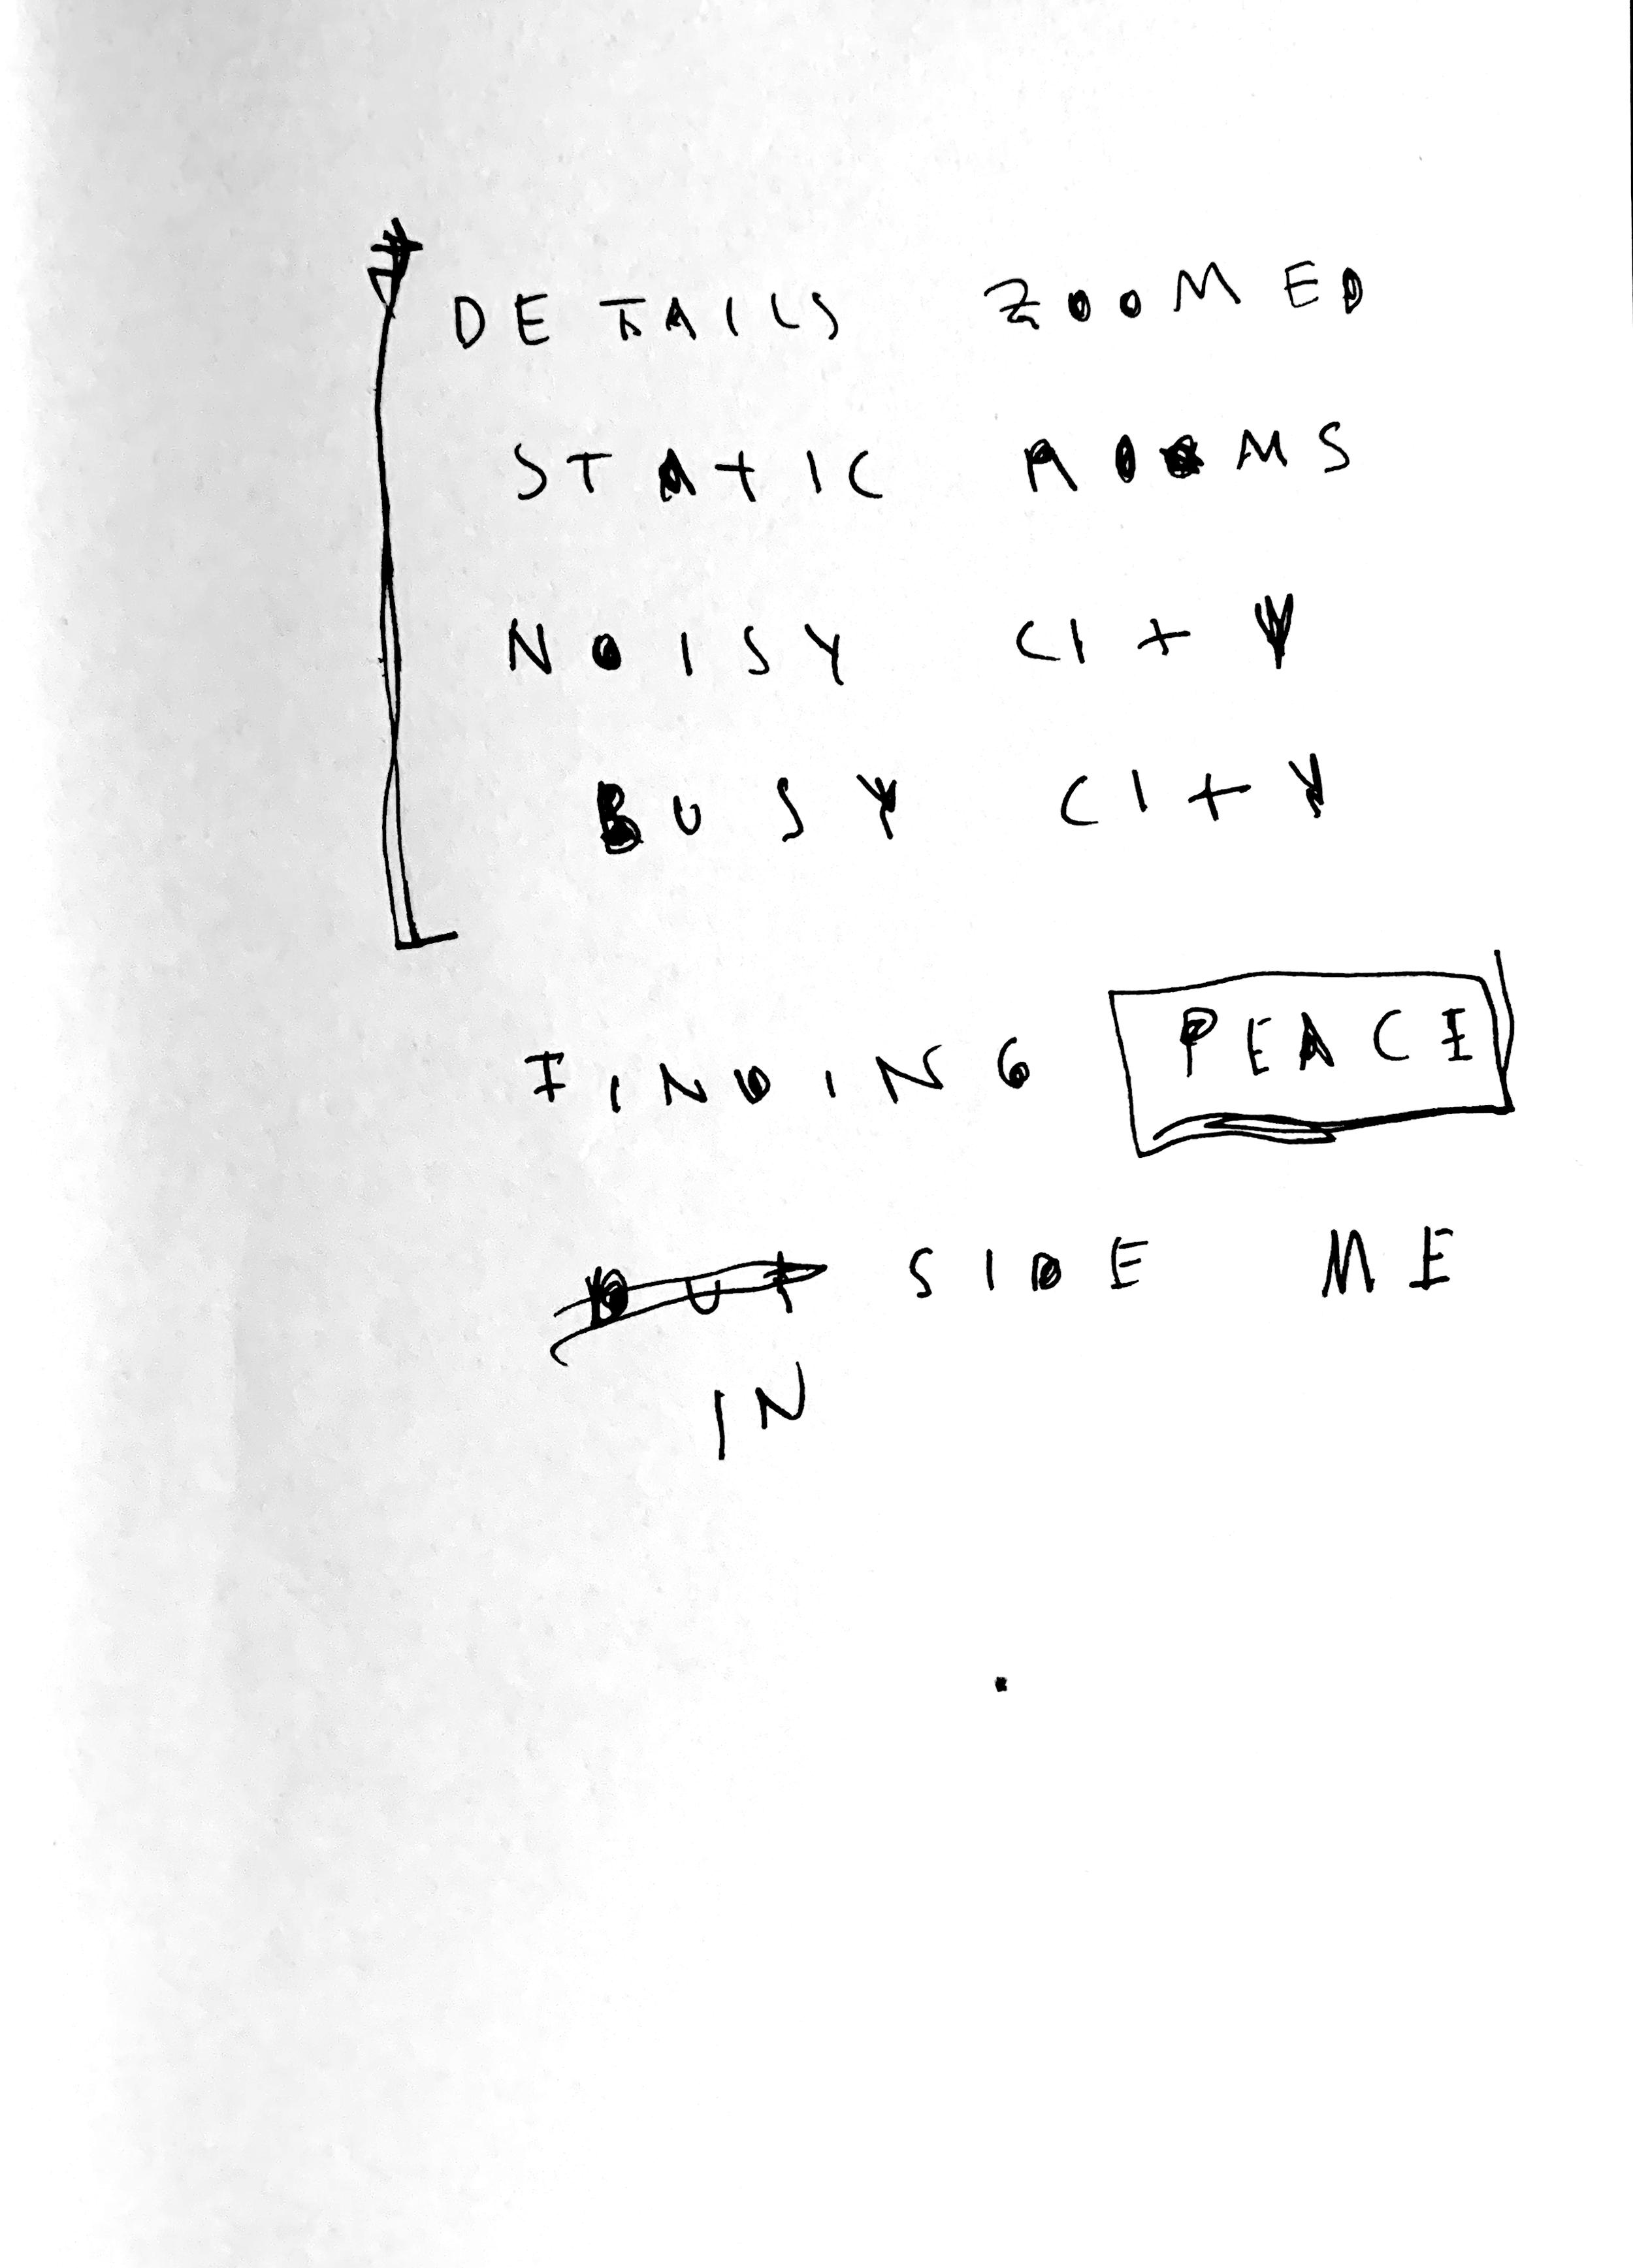 DETAILS ZOOMED
STATIC ROOMS
NOISY CITY
BUSY CITY
FINDING PEACE
OUT SIDE ME
IN